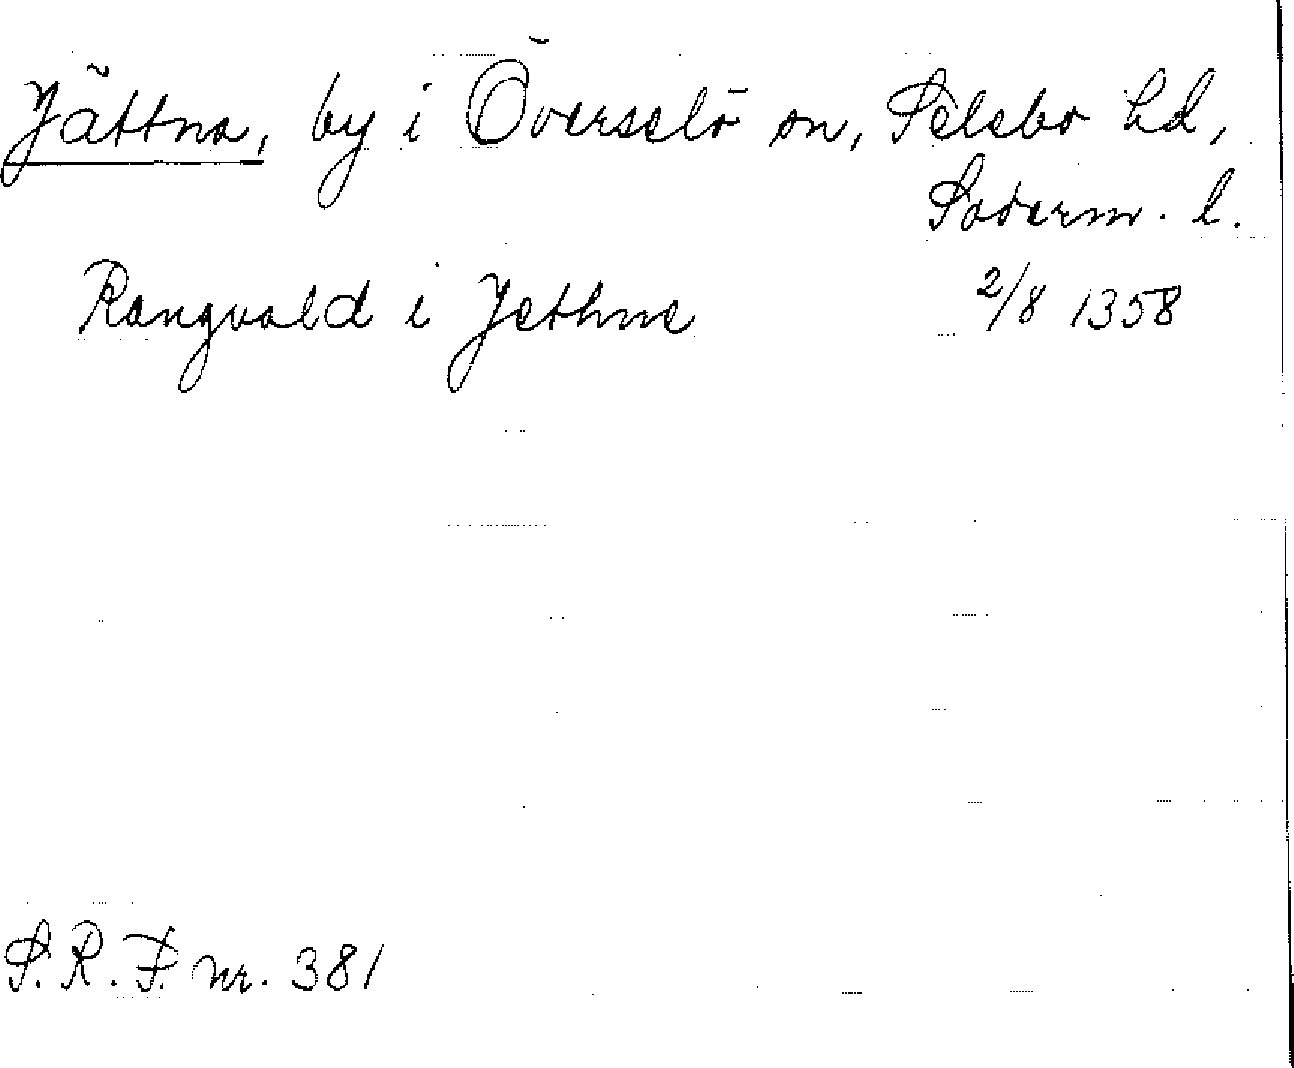 Jättna, by i Överselö sn, Selebo hd,
Söderm. l.
Rangvald i Jethne 2/8 1358
S.R.P. nr. 381